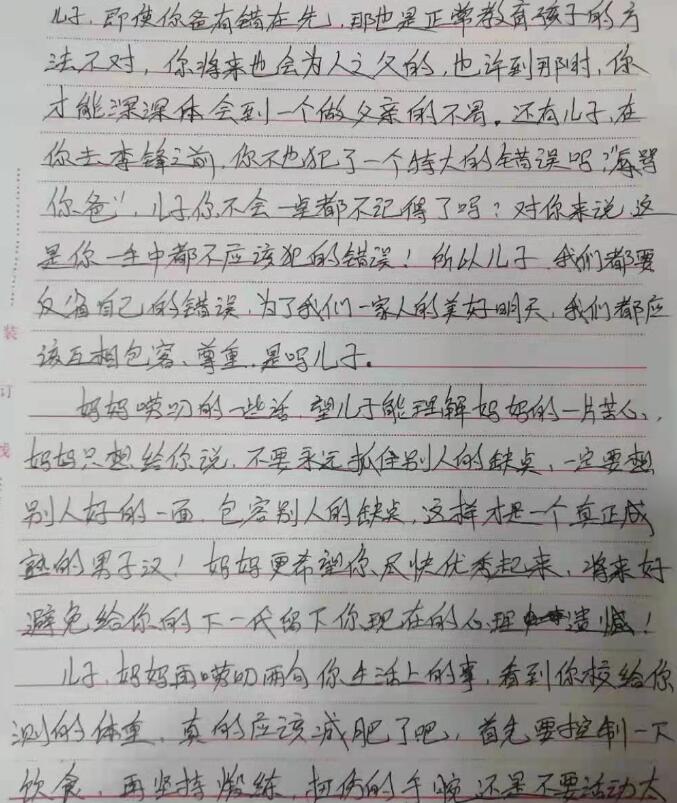 儿子,即使你爸有错在先,那也是正常教育孩子的方
法不对,你将来也会为人之父的,也许到那时,你
才能深深体会到一个做父亲的不易。还有儿子,在
你去李锋之前,你不也犯了一个特大的错误吗,"辱骂
你爸",儿子你不会一点都不记得了吗?对你来说,这
是你一生中都不应该犯的错误!所以儿子,我们都要
反省自己的错误,为了我们一家人的美好明天,我们都应
该互相包容、尊重,是吗儿子。
妈妈唠叨的一些话,望儿子能理解妈妈的一片苦心,
妈妈只想给你说,不要永远抓住别人的缺点,一定要想
别人好的一面,包容别人的缺点,这样才是一个真正成
熟的男子汉!妈妈更希望你尽快优秀起来,将来好
避免给你的下一代留下你现在的心理遗憾!
儿子,妈妈再唠叨两句你生活上的事,看到你校给你
测的体重,真的应该减肥了吧,首先要控制一下
饮食,再坚持煅练,扭伤的手腕还是不要活动太
装
订
线